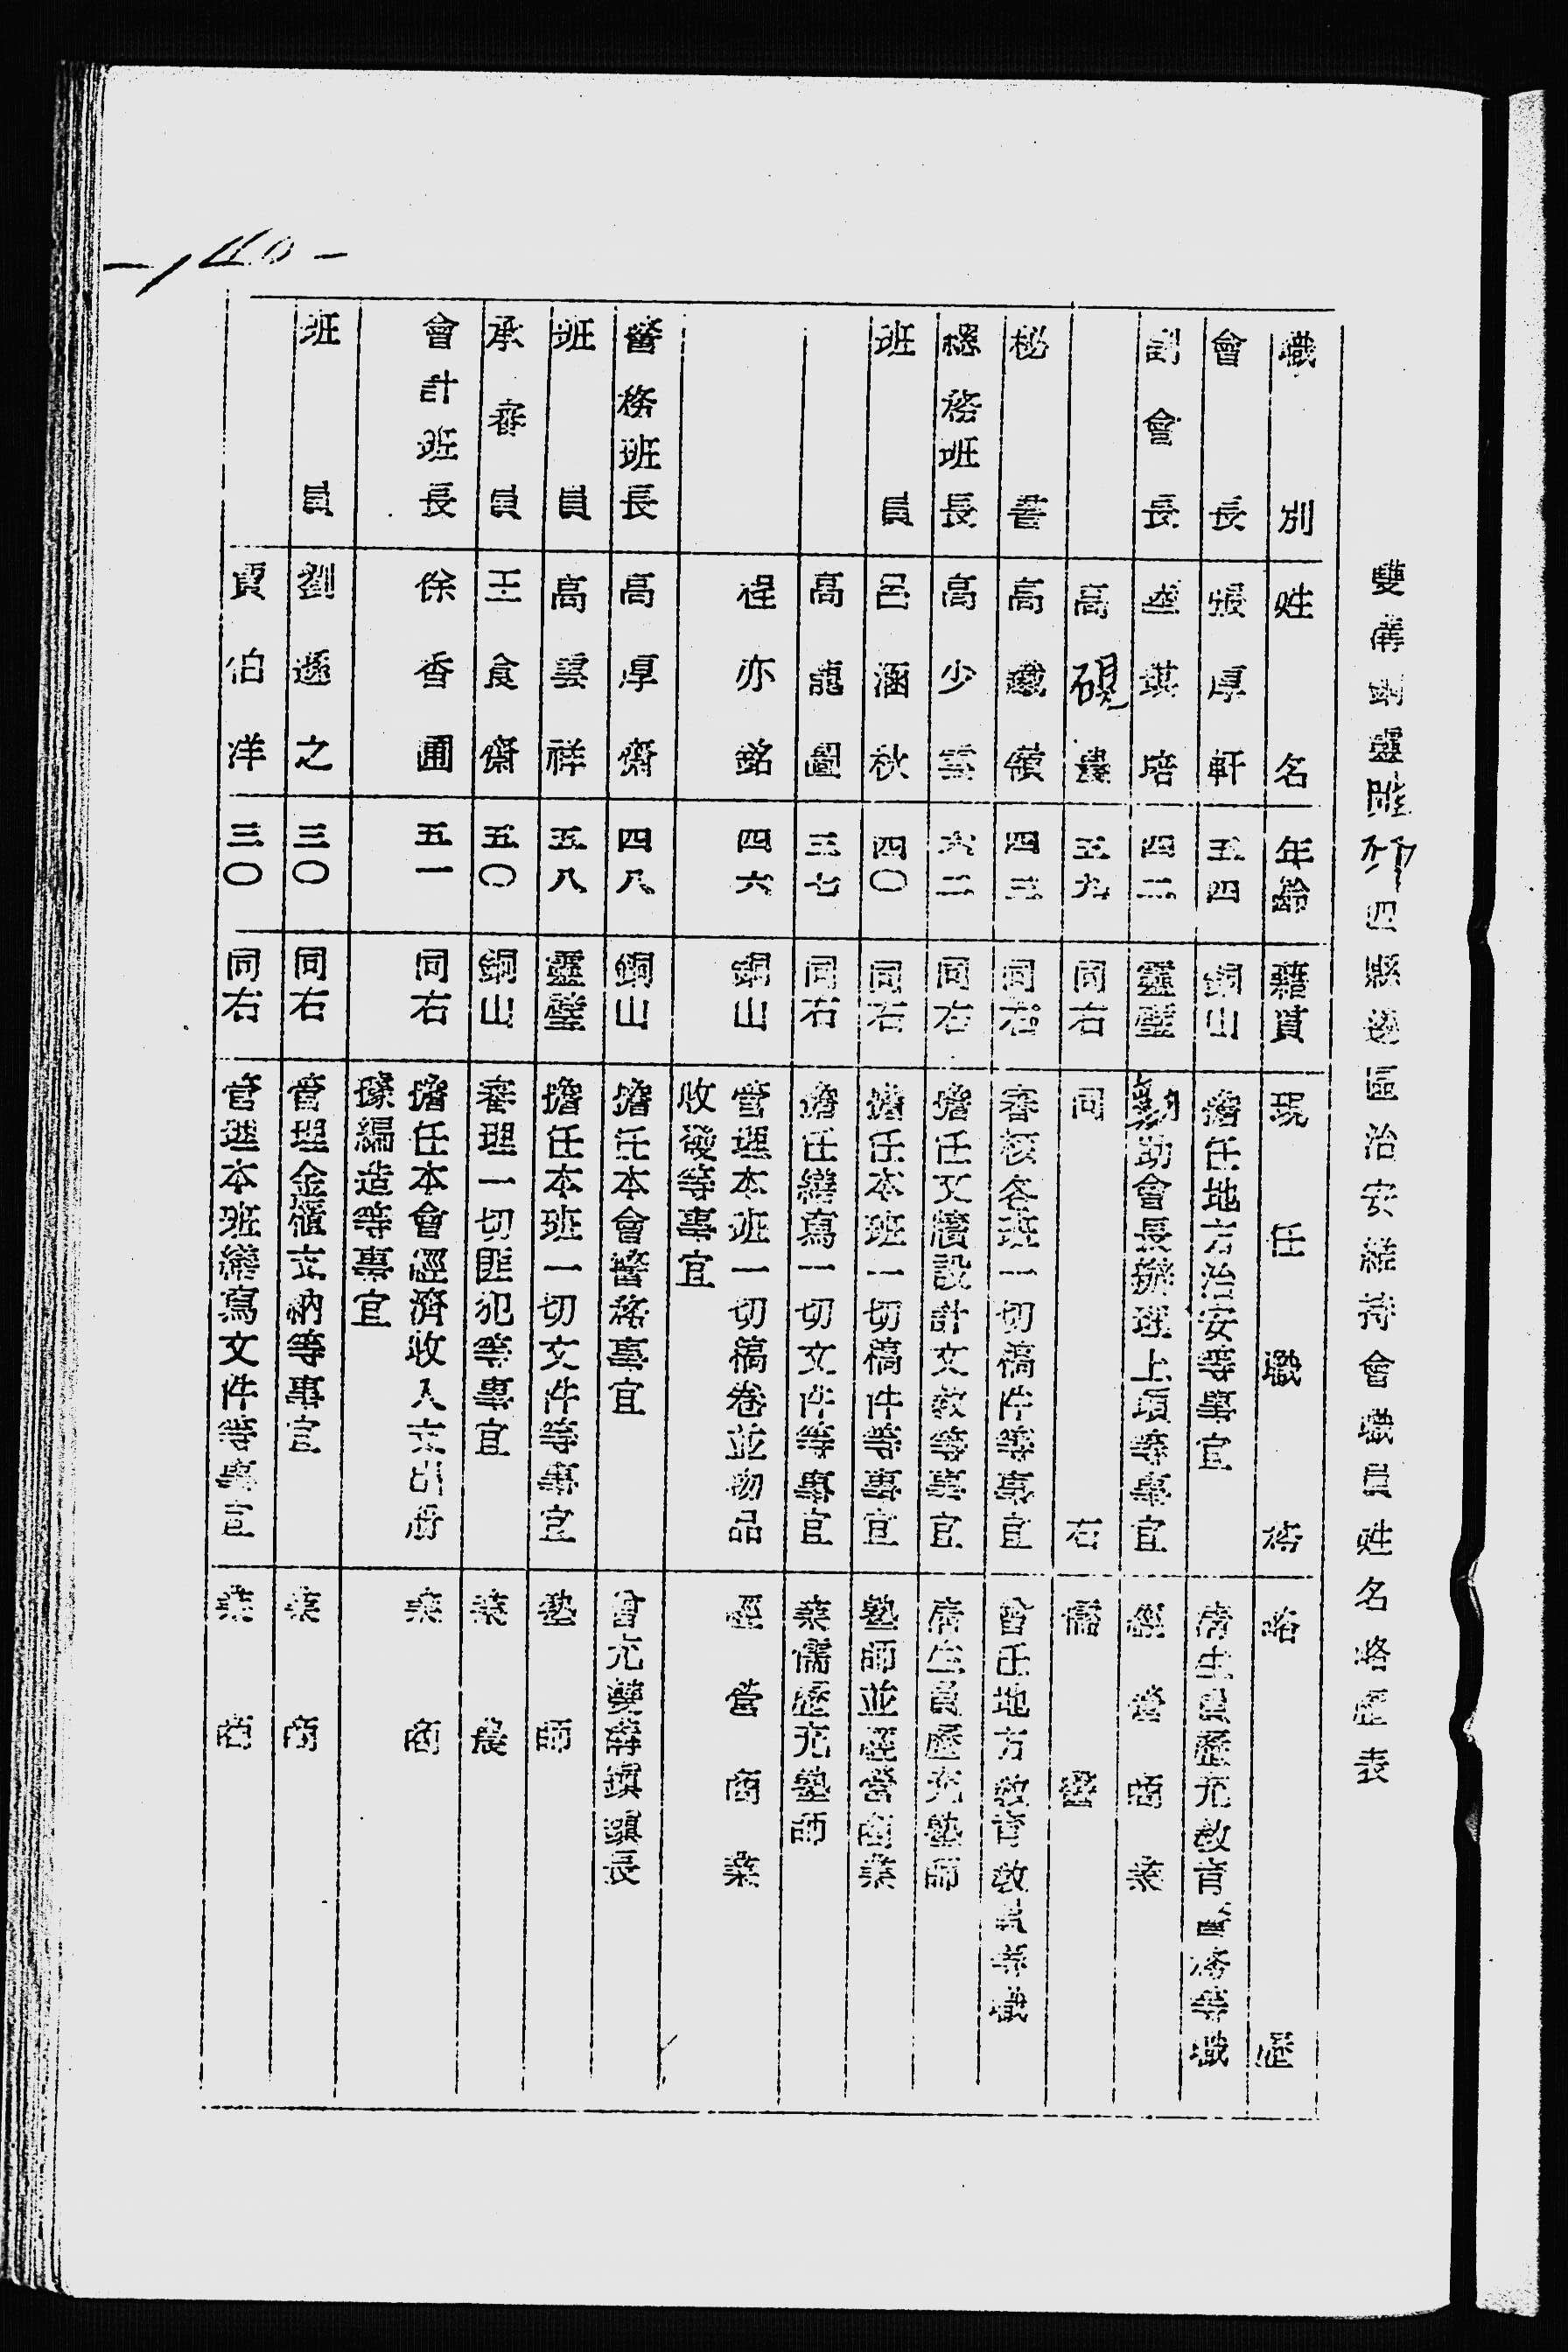 雙溝銅靈睢邳四縣邊區治安維持會職員姓名略歷表
職別 姓名 年齡 籍貫 現任職務 略歷
會長 張厚軒 五四 銅山 擔任地方治安等事宜 庠生員歷充教育警務等職
副會長 琪培 四二 靈璧 勷助會長辦理上項等事宜 經營商業
高硯 五九 同右 同右 儒醫
秘書 高 四三 同右 審核各班一切稿件等事宜 曾任地方教育教員等職
總務班長 高少雲 六二 同右 擔任文牘設計文教等事宜 庠生員歷充塾師
班員 呂涵秋 四〇 同右 擔任本班一切稿件等事宜 塾師並經營商業
高龍圖 三七 同右 擔任繕寫一切文件等事宜 業儒歷充塾師
程亦銘 四六 銅山 管理本班一切稿卷並物品收發等事宜 經營商業
警務班長 高厚齋 四八 銅山 擔任本會警務事宜 曾充雙溝鎮鎮長
班員 高雲祥 五八 靈璧 擔任本班一切文件等事宜 塾師
承審員 王食齋 五〇 銅山 審理一切匪犯等事宜 業農
會計班長 徐香圃 五一 同右 擔任本會經濟收入支出冊據編造等事宜 業商
班員 劉遜之 三〇 同右 管理金櫃支納等事宜 業商
賈伯洋 三〇 同右 管理本班繕寫文件等事宜 業商
-140-